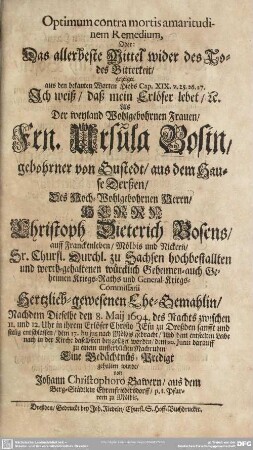 Optimum contra mortis amaritudi-
nem Remedium,
Oder:
Das allerbeste Mittel wider des To-
des Bitterkeit/
gezeiget
aus den bekanten Worten Hiobs Cap. XIX. v. 25. 26. 27.
Ich weiß/ daß mein Erlöser lebet/ ꝛc.
Als
Der weyland Wohlgebohrnen Frauen/
Frn. Ursula Bosin/
gebohrner von Gustedt/ aus dem Hau-
se Derßen/
Des Hoch-Wohlgebohrnen Herrn/
HERRN
Christoph Dieterich Bosens/
auff Franckenleben/ Mölbis und Nickern/
Sr. Churfl. Durchl. zu Sachsen hochbestallten
und werth-gehaltenen würcklich Geheimen-auch Ge-
heimen Kriegs-Raths und General-Kriegs-
Commissarii
Hertzlieb-gewesenen Ehe-Gemahlin/
Nachdem Dieselbe den 8. Maij 1694. des Nachts zwischen
11. und 12. Uhr in ihrem Erlöser Christo JEsu zu Dreßden sanfft und
seelig entschlaffen/ den 17. hujus nach Mölbis gebracht/ und
nach in der Kirche daselbsten beygesetzt worden/ den 20. Junii darauff
zu einen unsterblichen Nachruhm
Eine Gedächtnüs-Predigt
gehalten wurde/
von
Johann Christophoro Bawern/ aus dem
Berg-Städtlein Ehrenfriedersdorff/ p. t. Pfar-
rern zu Mölbis.
Dreßden/ Gedruckt bey Joh. Riedeln/ Churfl. S. Hoff-Buchdrucker.